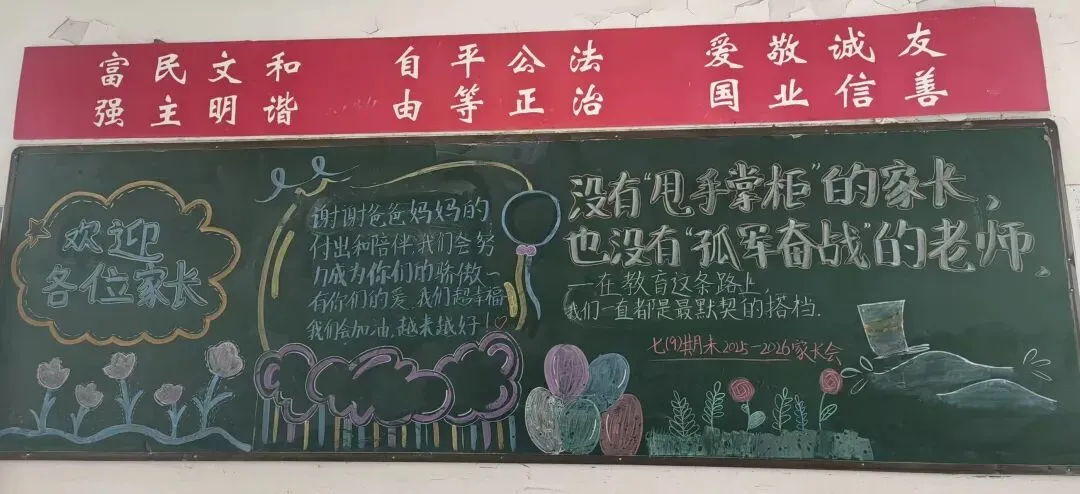 富强 民主 文明 和谐
自由 平等 公正 法治
爱国 敬业 诚信 友善
欢迎
各位家长
谢谢爸爸妈妈的
付出和陪伴,我们会努
力成为你们的骄傲~
有你们的爱,我们超幸福
我们会加油,越来越好!
没有"甩手掌柜"的家长,
也没有"孤军奋战"的老师,
—在教育这条路上,
我们一直都是最默契的搭档.
七(9)期末2025-2026家长会